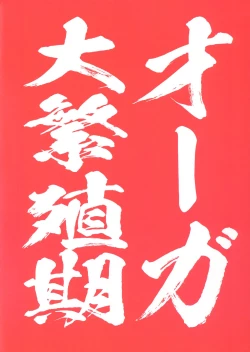 オーガ
大繁殖期